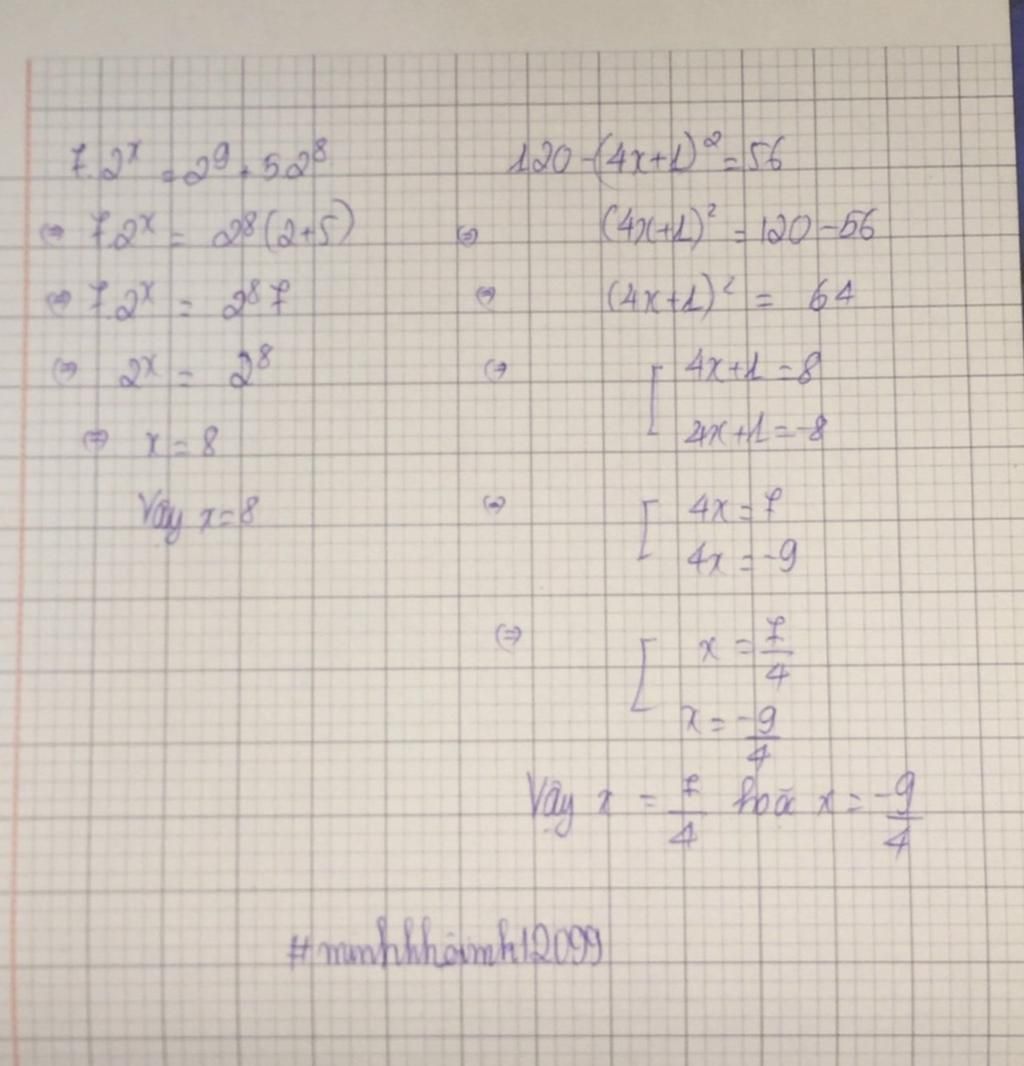 7.2^x = 2^9 + 5.2^8
⇔ 7.2^x = 2^8(2+5)
⇔ 7.2^x = 2^8 7
⇔ 2^x = 2^8
⇔ x = 8
Vây x = 8
120-(4x+1)^2 = 56
⇔ (4x+1)^2 = 120-56
⇔ (4x+1)^2 = 64
⇔ [ 4x+1 = 8
4x+1 = -8
⇔ [ 4x = 7
4x = -9
⇔ [ x = 7/4
x = -9/4
Vậy x = 7/4 hoă x = -9/4